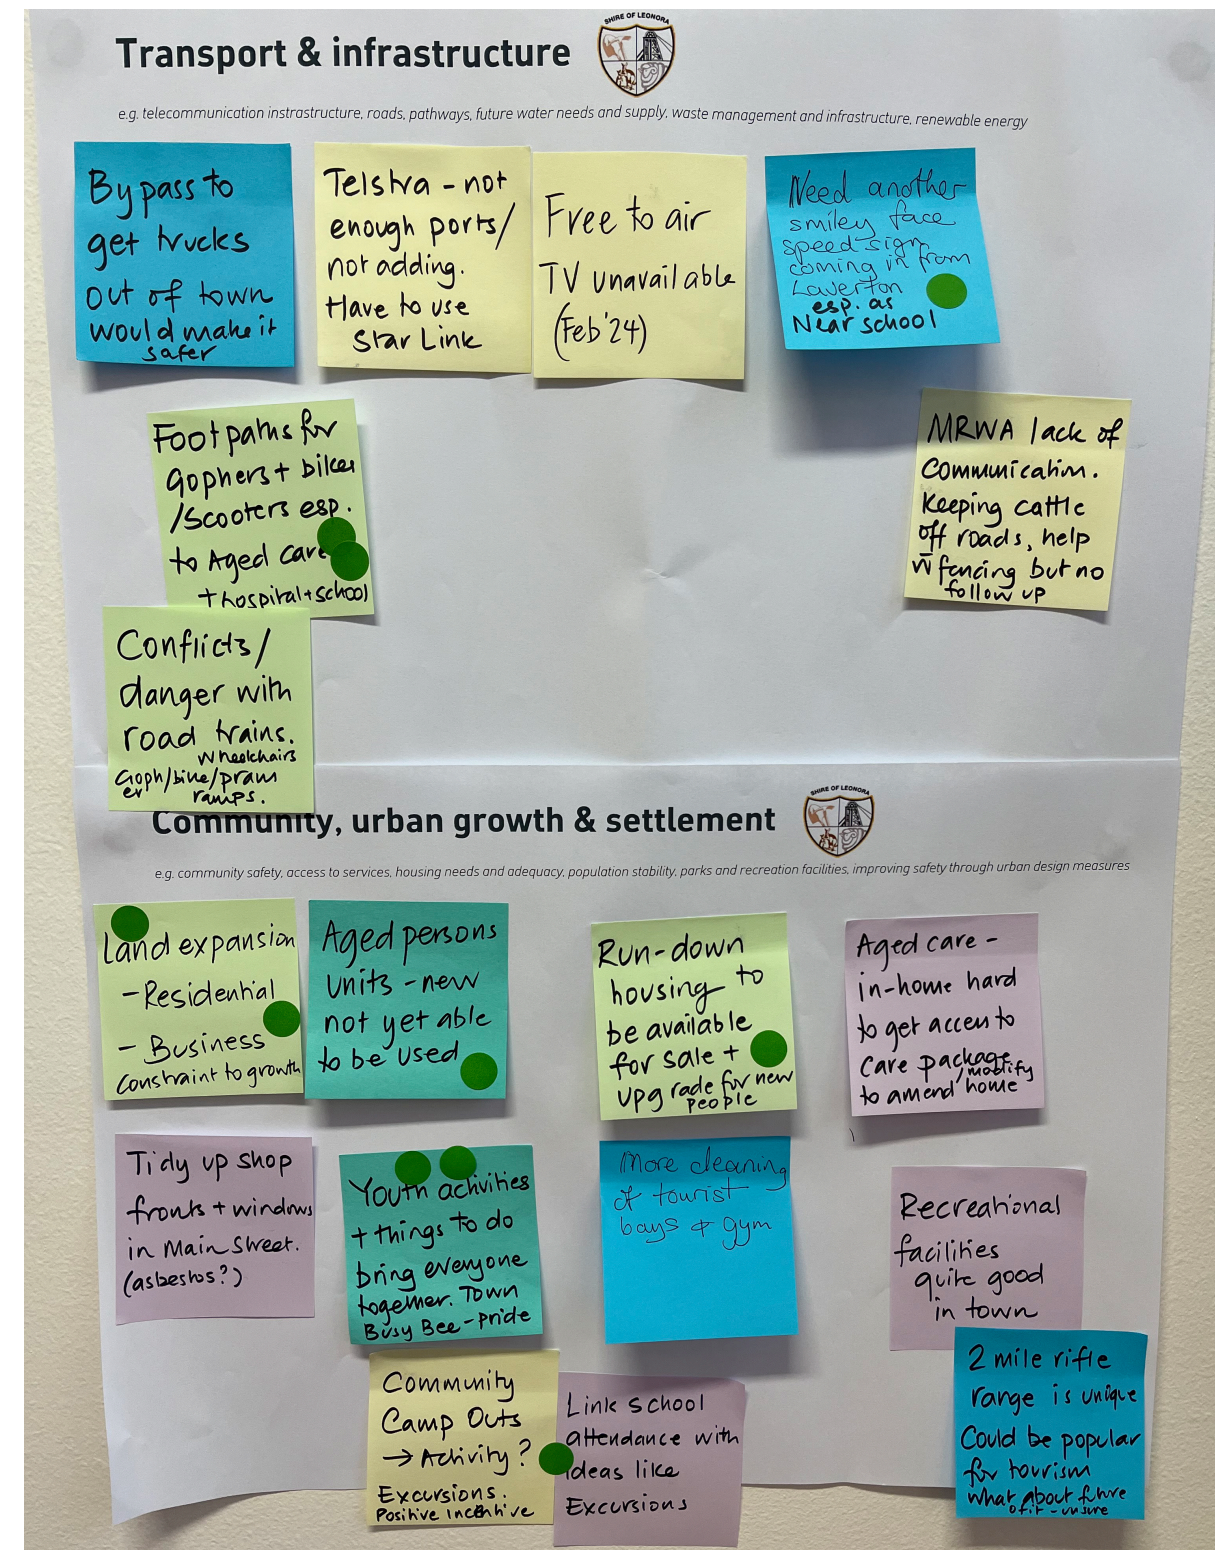 Transport & infrastructure
SHIRE OF LEONORA
e.g. telecommunication instrastructure, roads, pathways, future water needs and supply, waste management and infrastructure, renewable energy
Bypass to
get trucks
out of town
would make it
safer
Telstra - not
enough ports/
not adding.
Have to use
Star Link
Free to air
TV unavailable
(Feb '24)
Need another
smiley face
speed sign
coming in from
Laverton
esp. as
Near school
Footpaths for
Gophers + bikes
/Scooters esp.
to Aged care
+ hospital + school
MRWA lack of
Communication.
Keeping cattle
off roads, help
w̄ fencing but no
follow up
Conflicts/
danger with
road trains.
Wheelchairs
Goph/bike/pram
er ramps.
Community, urban growth & settlement
SHIRE OF LEONORA
e.g. community safety, access to services, housing needs and adequacy, population stability, parks and recreation facilities, improving safety through urban design measures
Land expansion
- Residential
- Business
Constraint to growth
Aged persons
units - new
not yet able
to be used
Run-down
housing to
be available
for sale +
upgrade for new
people
Aged care -
in-home hard
to get access to
care package
/modify
to amend home
Tidy up shop
fronts + windows
in Main Street.
(asbestos?)
Youth activities
+ things to do
bring everyone
together. Town
Busy Bee - pride
More cleaning
of tourist
bays & gym
Recreational
facilities
quite good
in town
Community
Camp Outs
→ Activity?
Excursions.
Positive Incentive
Link school
attendance with
ideas like
Excursions
2 mile rifle
range is unique
Could be popular
for tourism
what about future
of it - unsure